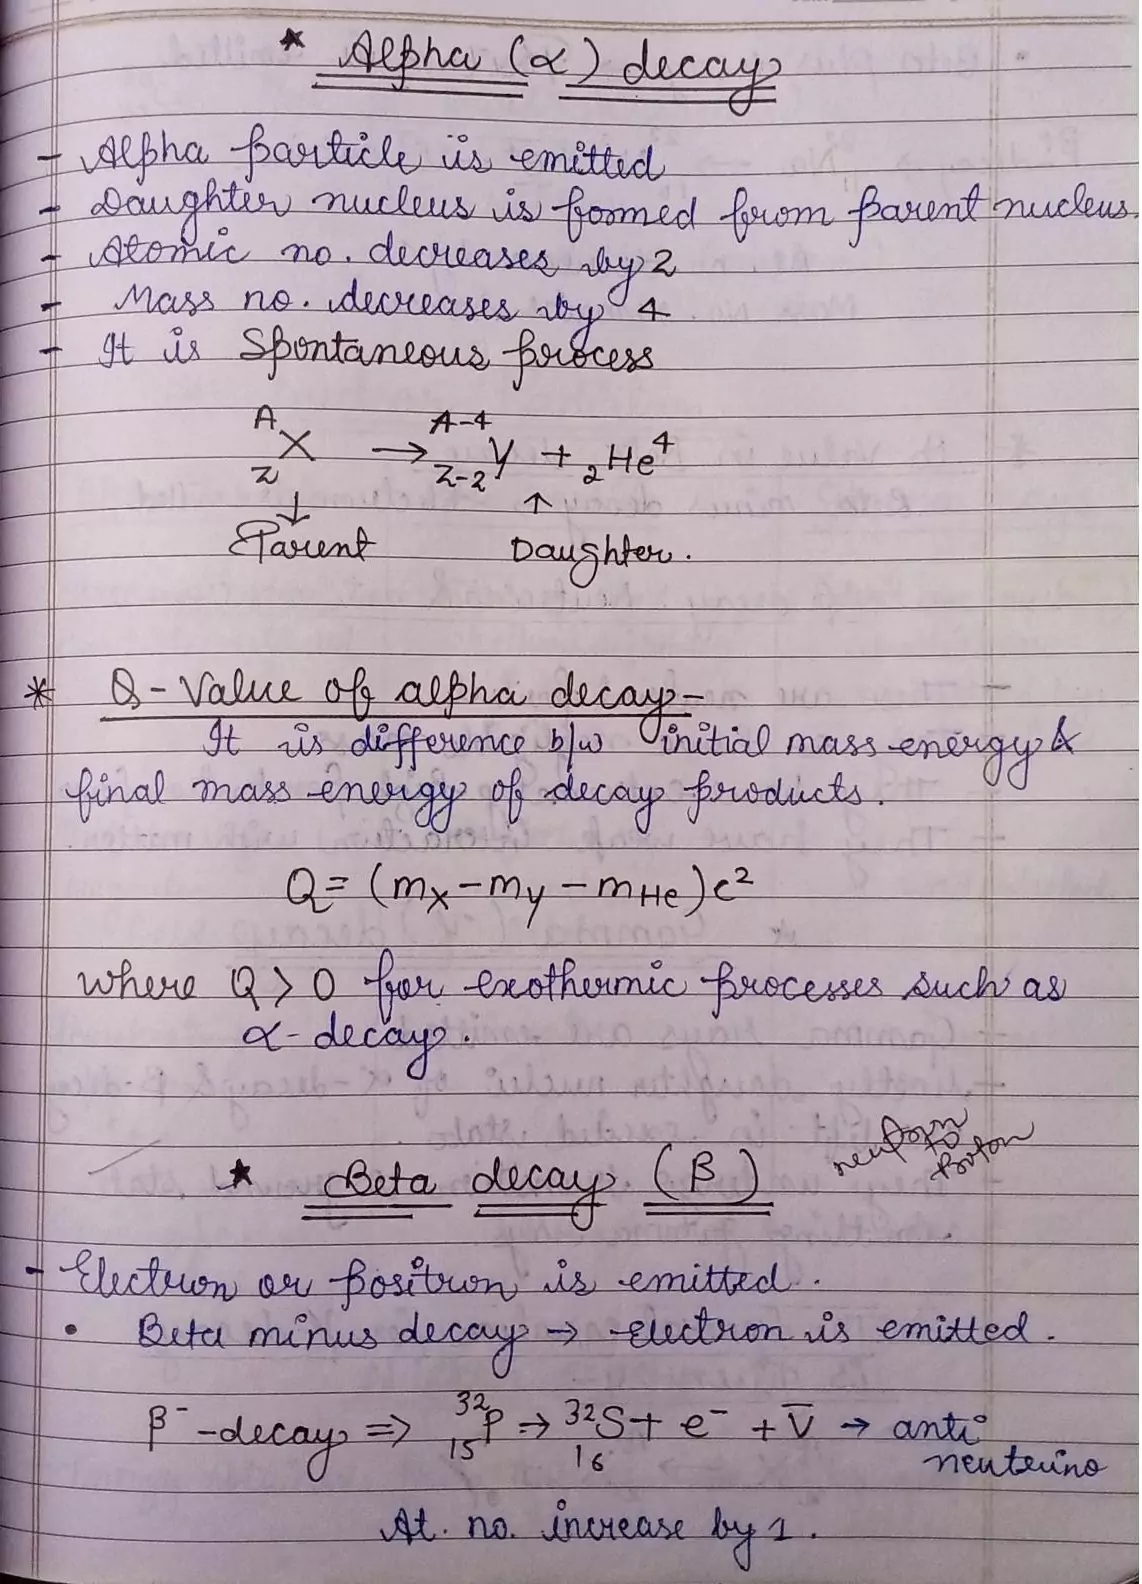 * Alpha (α) decay
- Alpha particle is emitted
- Daughter nucleus is formed from parent nucleus.
- Atomic no. decreases by 2
- Mass no. decreases by 4
- It is Spontaneous process
ᴬ_Z X → ᴬ⁻⁴_Z₋₂ Y + ₂He⁴
↓ ↑
Parent Daughter.
* Q-Value of alpha decay-
It is difference b/w initial mass energy &
final mass energy of decay products.
Q = (mX - mY - mHe)c²
where Q > 0 for exothermic processes such as
α-decay.
* Beta decay (β)
to
Proton
- Electron or positron is emitted.
• Beta minus decay → Electron is emitted.
β⁻-decay ⇒ ³²₁₅P → ³²₁₆S + e⁻ + ν̄ → anti
neuterino
At. no. increase by 1.